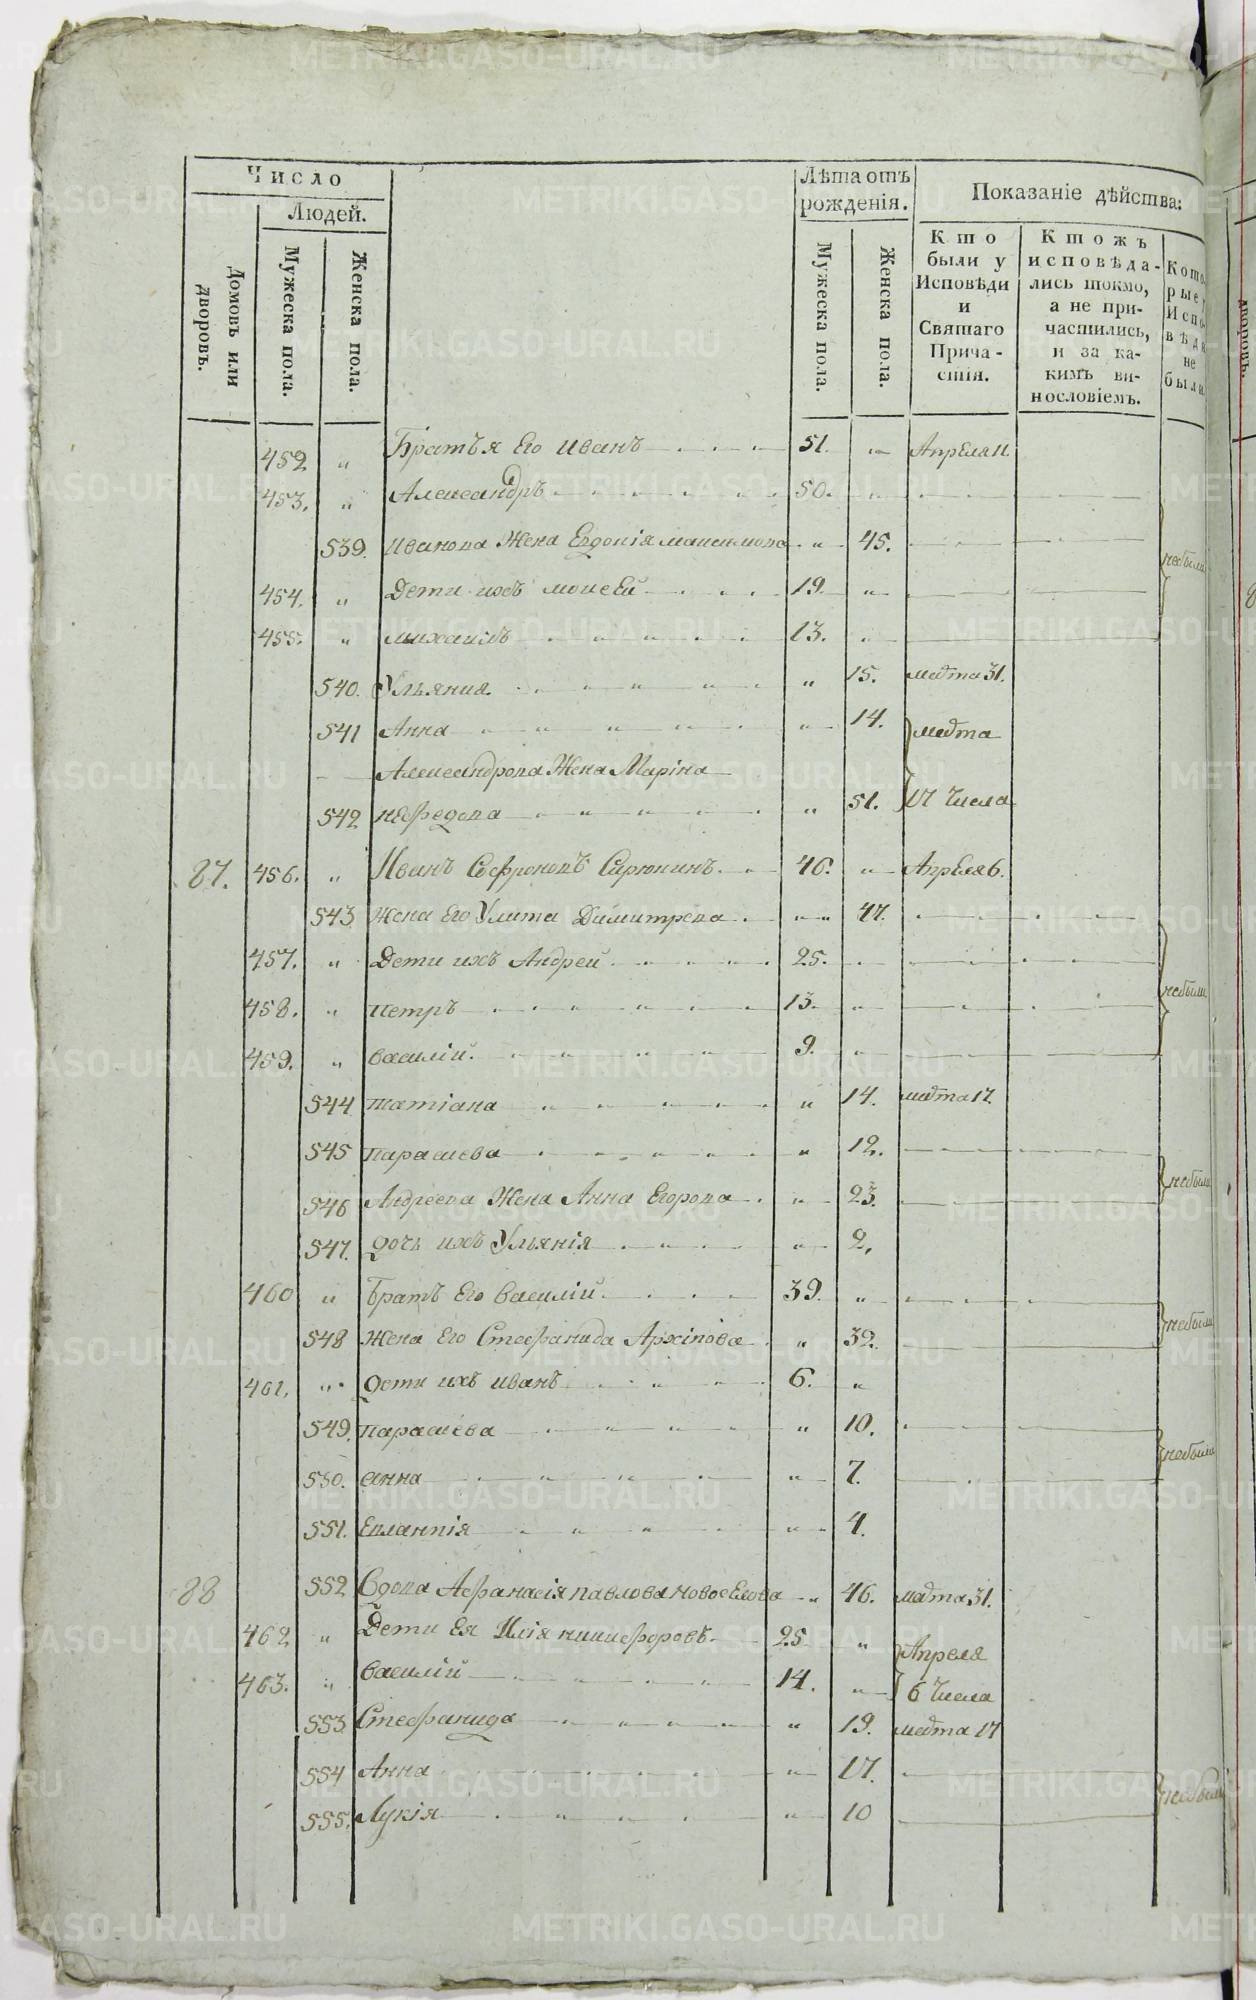 Число
Людей.
Домовъ или дворовъ.
Мужеска пола.
Женска пола.
Лѣта отъ рожденія.
Мужеска пола.
Женска пола.
Показаніе дѣйства:
Кто были у Исповѣди и Святаго Прича-стія.
Ктожъ исповѣда-лись токмо, а не при-частились, и за ка-кимъ ви-нословіемъ.
Кото-рые Испо-вѣди не были
452 „ Братья Его Иванъ 51. „ Апреля 11
453. „ Александръ 50. „
539. Иванова Жена Евдокія максимова „ 45.
454. „ Дети ихъ моисей 19. „
небыли
455. „ михаилъ 13. „
540. Ульяния „ 15. марта 31.
541 Анна „ 14. марта
Александрова Жена Марина
542 нефедова „ 51. 17 Числа
87. 456. „ Иванъ Софроновъ Сирюкинъ 46. „ Апреля 6.
543 Жена Его Улита Димитрева „ 47.
457. „ Дети ихъ Андрей 25.
458. „ петръ 13. „ небыли
459. „ василий 9. „
544 татіана „ 14. марта 17.
545 парасева „ 12.
546 Андреева Жена Анна Егорова „ 23. небыли
547. дочь ихъ Ульянія „ 2.
460 „ Братъ Его Василій 39. „
548 Жена Его Стефанида Архіпова „ 32. небыли
461. „ дети ихъ иванъ 6. „
549. парасева „ 10.
550. анна „ 7. небыли
551. Евланпія „ 4.
88 552 Вдова Афанасія павлова новоселова „ 46. марта 31.
462 „ Дети Ея Илія никифоровъ 25 „ Апреля
463. „ Василій 14. „ 6 Числа
553 Стефанида „ 19. марта 17
554 Анна „ 17.
555. Лукія „ 10 небыли
METRIKI.GASO-URAL.RU